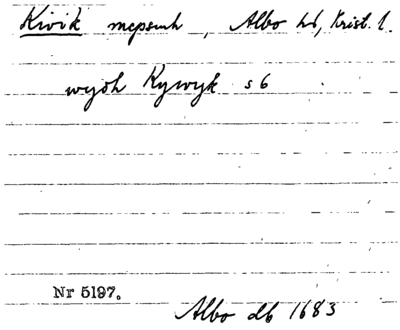 Kivik mcpsmh, Albo hd, Krist. l.
wyöh Kywyk s 6
Nr 5197.
Albo db 1683